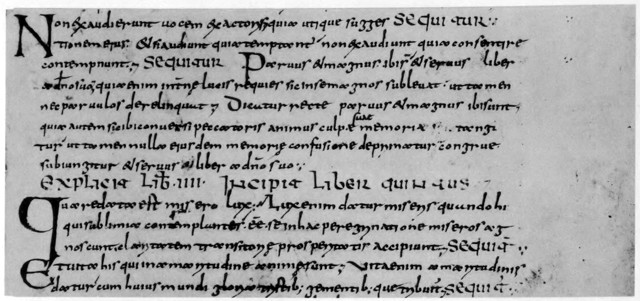 Non exaudierunt vocem exactoris quia utique sugges SEQUITUR
tionem eius. Et exaudiunt quia temptantur non exaudiunt quia consentire
contempnunt; SEQUITUR Parvus et magnus ibi sunt et servus liber
a dño suo; quia enim lucis requies sic in se magnos sublevat ut tamen
nec parvulos derelinquat; Dicatur recte parvus et magnus ibi sunt
quia autem sic ibi conversi peccatoris animus culpae suae memoria tangi
tur ut tamen nulla eiusdem memorie confusione deprimatur congrue
subiungitur et servus liber a dño suo
EXPLICIT LIB IIII INCIPIT LIBER QUINTUS
Quare data est misero lux; Lux enim datur miseris quando hi
qui sublimia contemplantes esse se in hac peregrinatione miseros ag
noscunt claritatem transitoriae prosperitatis accipiunt; SEQUIT
Et vita his qui in amaritudine animae sunt; Vita enim amaritudinis
datur cum huius mundi gloria gementib; SEQUIT